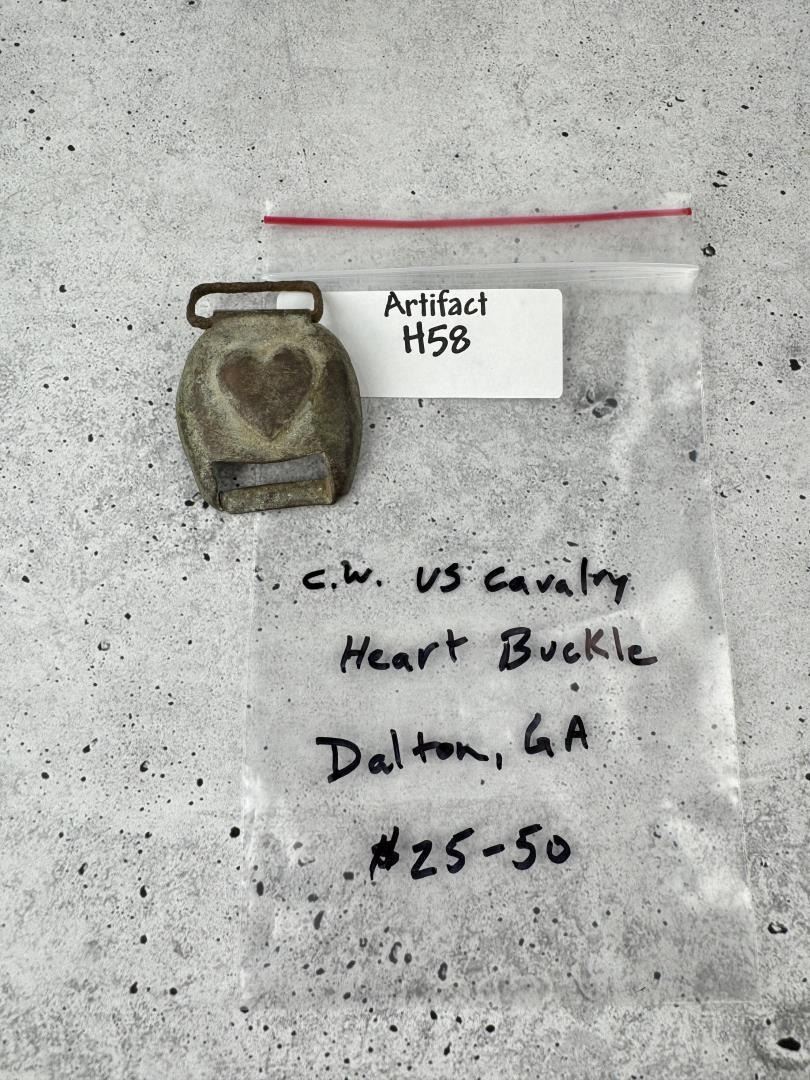 Artifact
H58
c.w. US Cavalry
Heart Buckle
Dalton, GA
$25-50